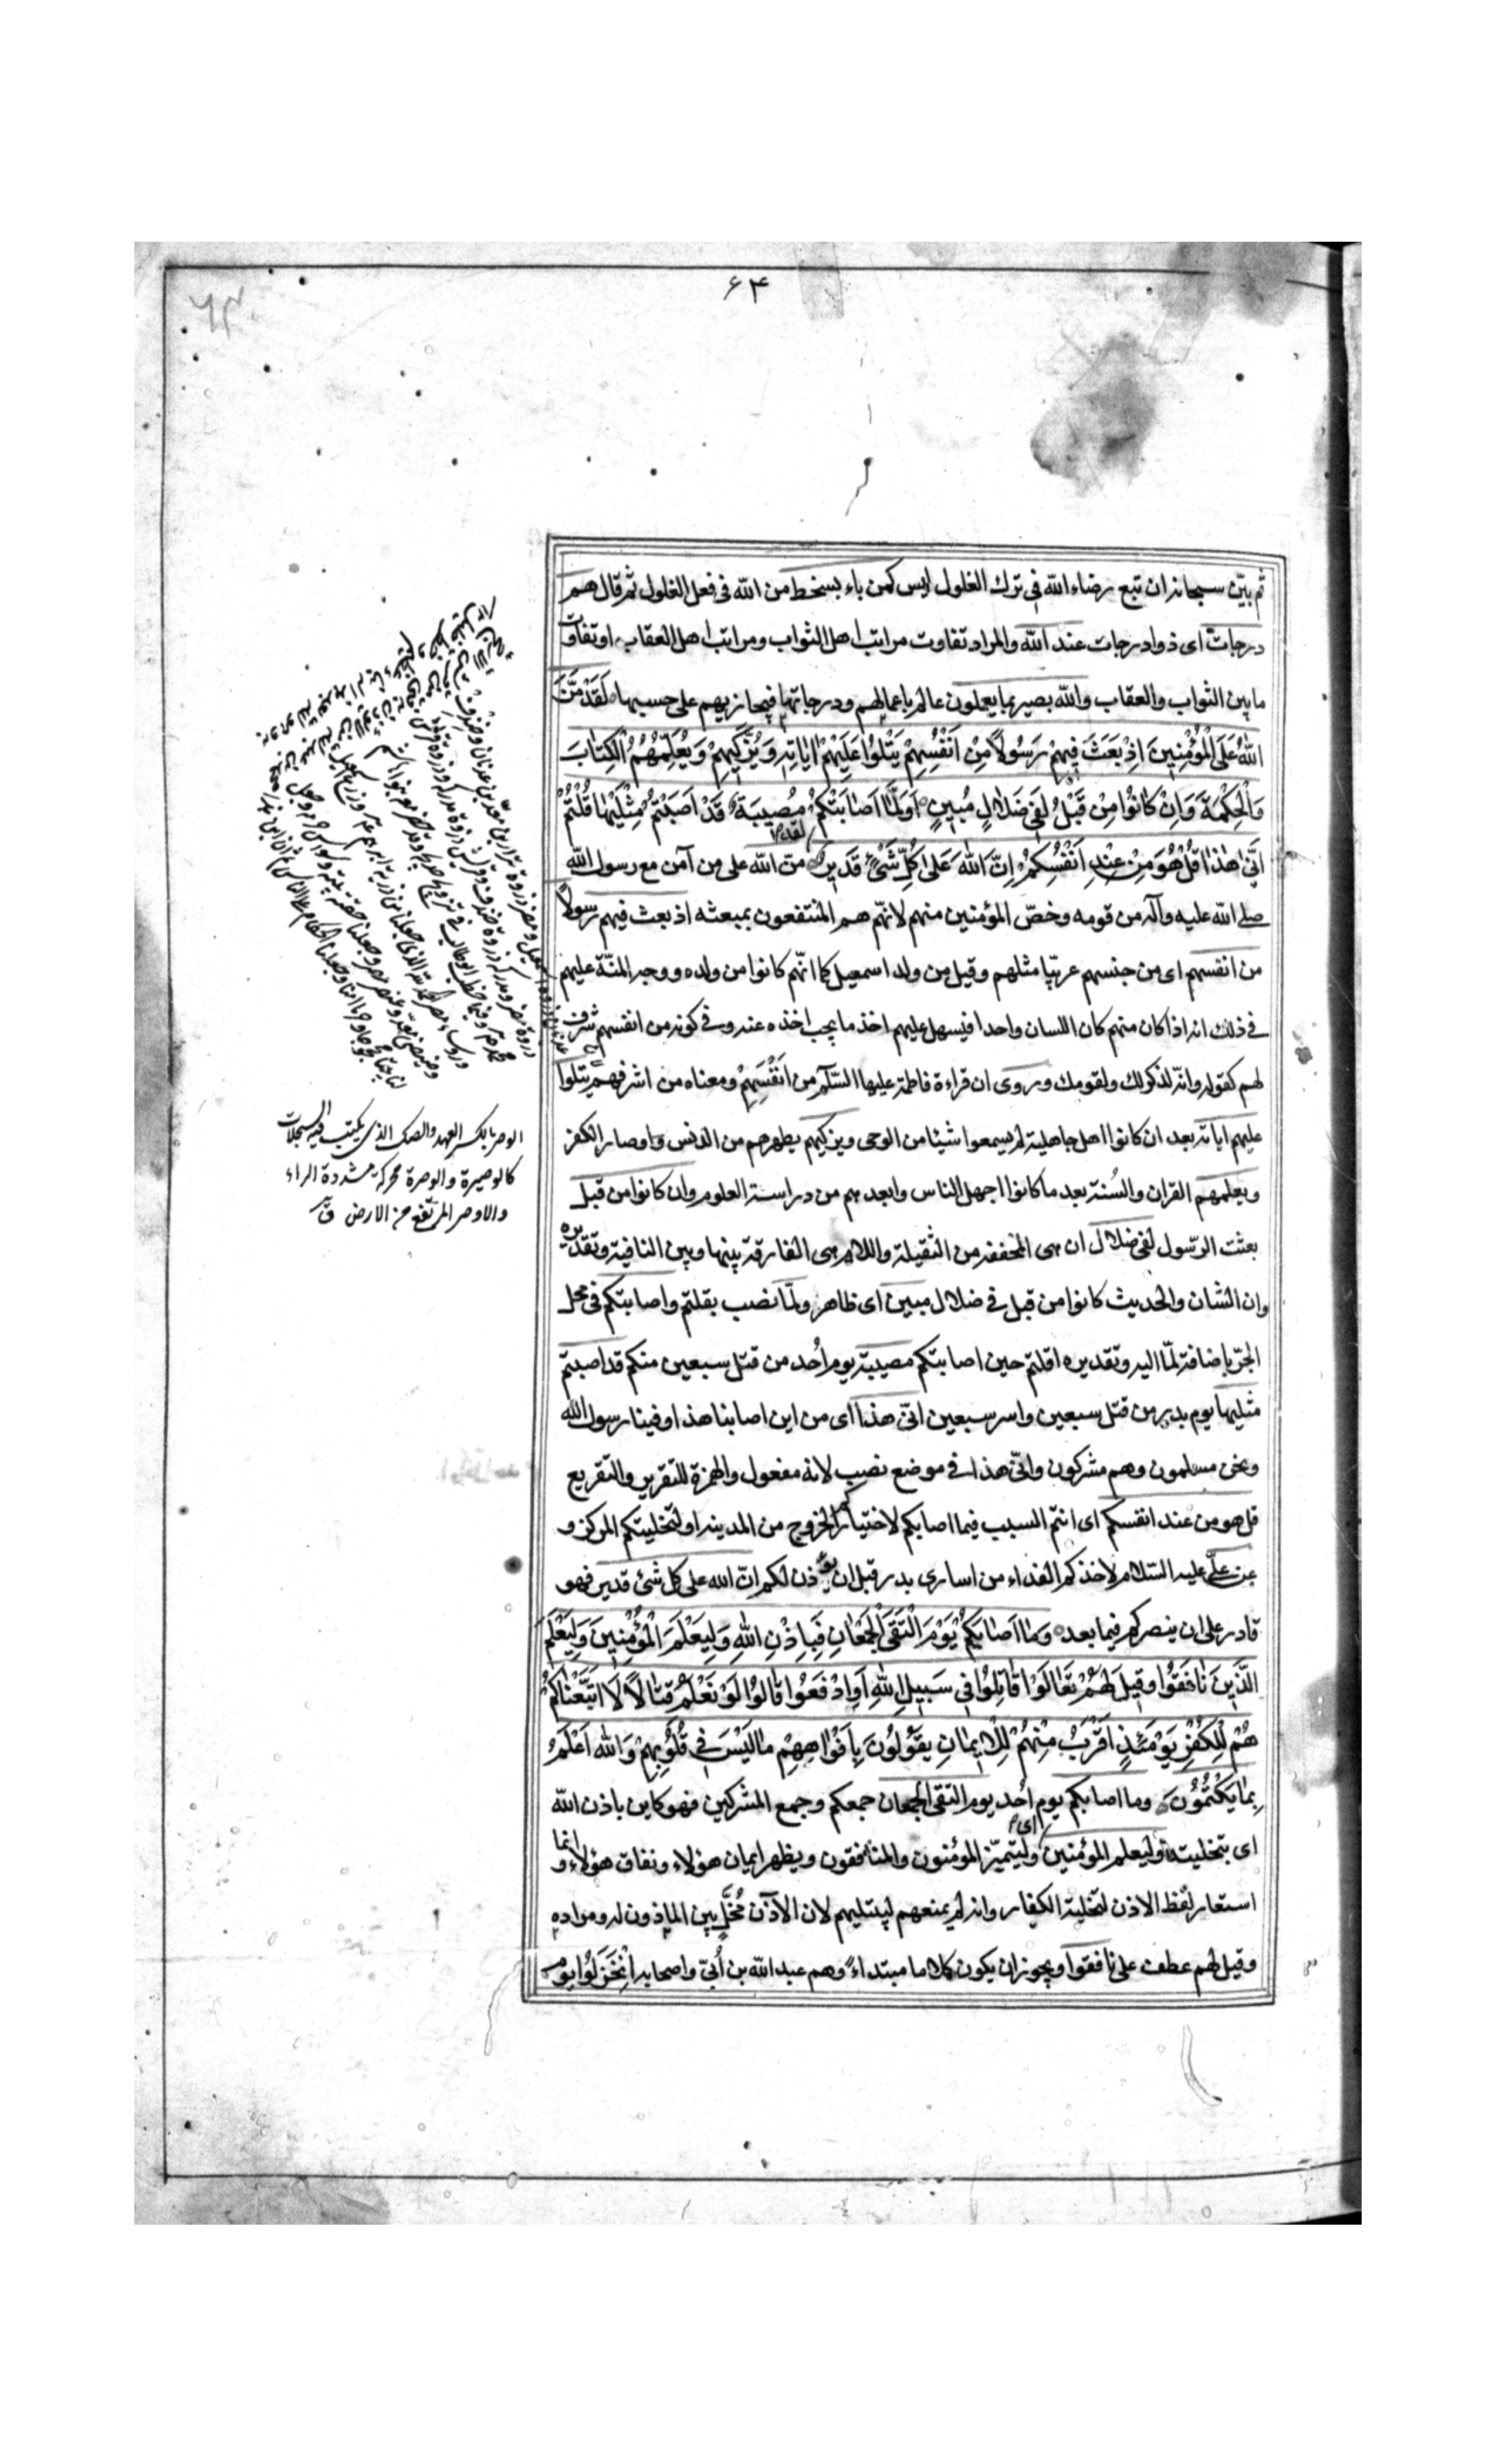 ۶۴
ثم بیّن سبحانه ان تبع رضاء الله فی ترك الغلول لیس كمن باء بسخط من الله فی فعل الغلول ثم قال هم
درجات ای ذوا درجات عند الله والمراد تفاوت مراتب اهل الثواب ومراتب اهل العقاب او تفاوت
ما بین الثواب والعقاب والله بصیر بما یعملون عالم باعمالهم ودرجاتها فیجازیهم علی حسبها لَقَدْ مَنَّ
اللهُ عَلَی الْمُؤْمِنِینَ اِذْ بَعَثَ فِیهِمْ رَسُولًا مِنْ اَنْفُسِهِمْ یَتْلُوا عَلَیْهِمْ ایَاتِهِ وَیُزَكِّیهِمْ وَیُعَلِّمُهُمُ الْكِتَابَ
وَالْحِكْمَةَ وَاِنْ كَانُوا مِنْ قَبْلُ لَفِی ضَلَالٍ مُبِینٍ اَوَلَمَّا اَصَابَتْكُمْ مُصِیبَةٌ قَدْ اَصَبْتُمْ مِثْلَیْهَا قُلْتُمْ
اَنّٰی هٰذَا قُلْ هُوَ مِنْ عِنْدِ اَنْفُسِكُمْ اِنَّ اللهَ عَلَی كُلِّ شَیْءٍ قَدِیرٌ لقد منّ الله علی من آمن مع رسول الله
صلی الله علیه وآله من قومه وخصّ المؤمنین منهم لانهّم هم المنتفعون بمبعثه اذ بعث فیهم رسولًا
من انفسهم ای من جنسهم عربیّا مثلهم وقیل من ولد اسمعیل كما انهّم كانوا من ولده ووجه المنّة علیهم
فی ذلك انه اذا كان منهم كان اللسان واحدا فیسهل علیهم اخذ ما یجب اخذه عنه وفی كونه من انفسهم شرف
لهم كقوله وانه لذكر لك ولقومك وروی ان قراءة فاطمة علیها السّلام من اَنْفَسِهِمْ ومعناه من اشرفهم یتلوا
علیهم ایاته بعد ان كانوا اهل جاهلیة لم یسمعوا شیئا من الوحی ویزكیهم یطهرهم من الدنس واوصار الكفر
ویعلمهم القران والسُنة بعد ما كانوا اجهل الناس وابعدهم من دراسة العلوم وان كانوا من قبل
بعثت الرّسول لفی ضلال ان هی المخففه من الثقیلة واللام هی الفارقة بینها وبین النافیة وتقدیره
وان الشان والحدیث كانوا من قبل فی ضلال مبین ای ظاهر ولمّا نصب بقلتم واصابتكم فی محل
الجرّ باضافة لمّا الیه وتقدیره اقلتم حین اصابتكم مصیبة یوم اُحد من قتل سبعین منكم قد اصبتم
مثلیها یوم بدر من قتل سبعین واسر سبعین انیّ هذا ای من این اصابنا هذا وفینا رسول الله
ونحن مسلمون وهم مشركون وانّی هذا فی موضع نصب لانه مفعول والهمزة للتقریر والتقریع
قل هو من عند انفسكم ای انتم السبب فیما اصابكم لاختیاركم الخروج من المدینه او لتخلیتكم المركز و
عن علیّ علیه السّلام لاخذكم الفداء من اساری بدر قبل ان یؤذن لكم انّ الله علی كل شئ قدیر فهو
قادر علی ان ینصركم فیما بعد وَمَا اَصَابَكُمْ یَوْمَ الْتَقَی الْجَمْعَانِ فَبِاِذْنِ اللهِ وَلِیَعْلَمَ الْمُؤْمِنِینَ وَلِیَعْلَمَ
الَّذِینَ نَافَقُوا وَقِیلَ لَهُمْ تَعَالَوْا قَاتِلُوا فِی سَبِیلِ اللهِ اَوِ ادْفَعُوا قَالُوا لَوْ نَعْلَمُ قِتَالًا لَا اتَّبَعْنَاكُمْ
هُمْ لِلْكُفْرِ یَوْمَئِذٍ اَقْرَبُ مِنْهُمْ لِلْاِیمَانِ یَقُولُونَ بِاَفْوَاهِهِمْ مَا لَیْسَ فِی قُلُوبِهِمْ وَالله اَعْلَمُ
بِمَا یَكْتُمُونَ وما اصابكم یوم اُحد یوم التقی الجمعان جمعكم وجمع المشركین فهو كاین باذن الله
ای بتخلیته ولیعلم المؤمنین ای ولیتمیّز المؤمنون والمنافقون ویظهر ایمان هؤلاء ونفاق هؤلاء وانما
استعار لفظ الاذن لتخلیة الكفار وانه لم یمنعهم لیبتلیهم لان الآذن مُخَلٍّ بین الماذون له ومراده
وقیل لهم عطف علی نافقوا ویجوز ان یكون كلاما مبتداءً وهم عبد الله بن اُبیّ واصحابه اِنْخَزَلُوا یوم
الوصر بالكسر العهد والصك الذی یكتب فیه السجلات
كالوصیرة والوصرة محركة مشددة الراء
والاوصر المرتفع من الارض ق